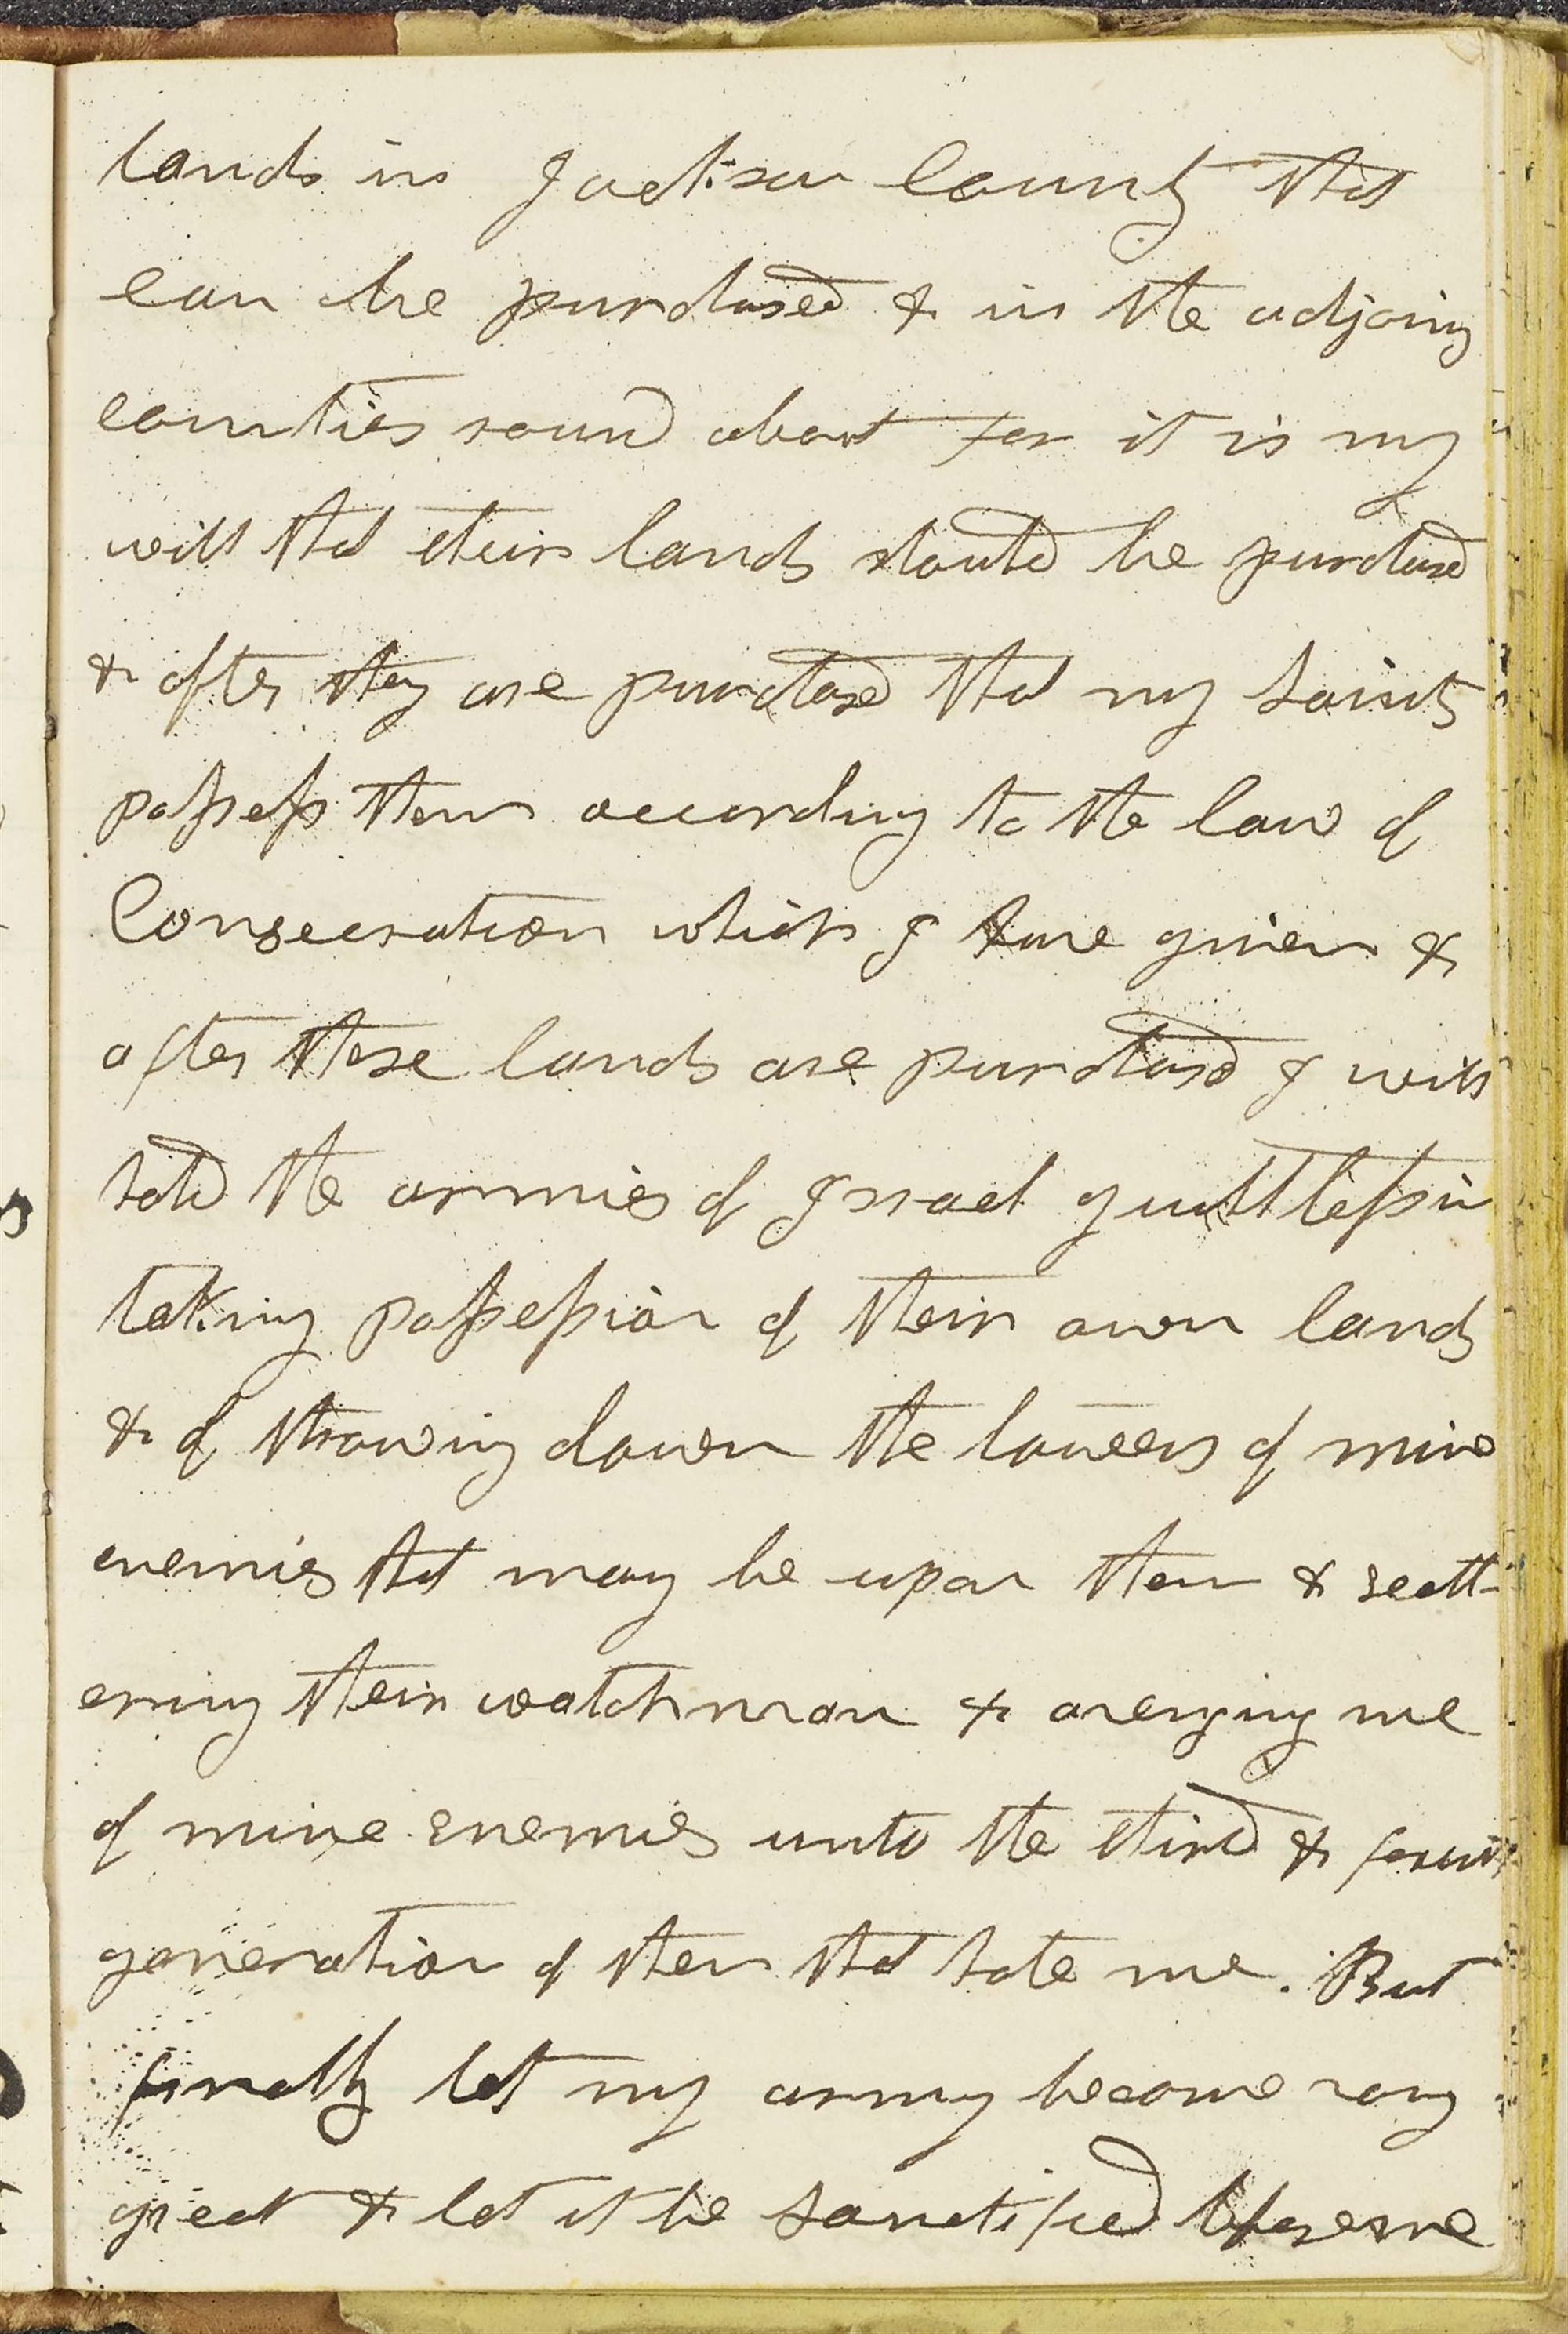 lands in Jackson County that
can be purchased & in the adjoing
counties round about for it is my
will that their lands should be purchased
& after they are purchased that my saints
possess them according to the law of
Consecration which I have given &
after these lands are purchased I will
hold the armies of Israel guiltless in
taking possession of their own lands
& of throwing down the towers of mine
enemies that may be upon them & scatt-
ering their watchman & avenging me
of mine enemies unto the third & fourth
generation of them that hate me. But
finally let my army become very
great & let it be sanctified before me